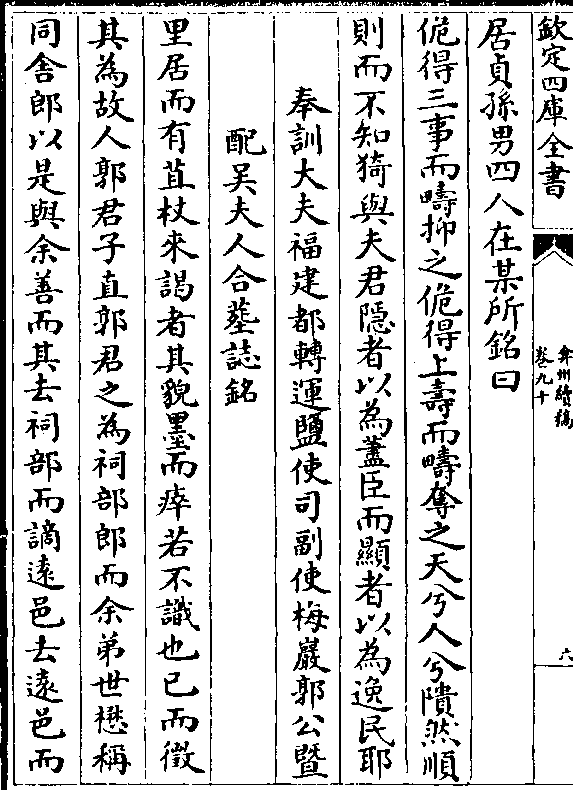 欽定四庫全書
弇州續稿
卷九十
六
居貞孫男四人在某所銘曰
佹得三事而疇抑之佹得上壽而疇奪之天兮人兮隤然順
則而不知猗與夫君隠者以為藎臣而顯者以為逸民耶
奉訓大夫福建都轉運鹽使司副使梅巖郭公暨
配吴夫人合塟誌銘
里居而有苴杖來謁者其貌墨而瘁若不識也已而徴
其為故人郭君子直郭君之為祠部郎而余弟世懋稱
同舍郎以是與余善而其去祠部而謫逺邑去逺邑而